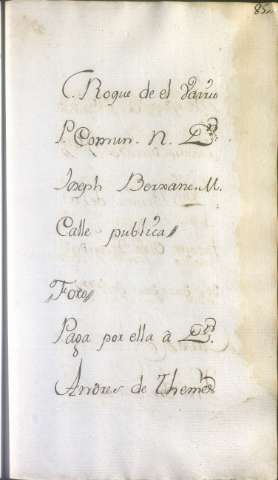 82
C. Roque de el Varrio
P. Comun. N. Dn.
Joseph Bermanc. M.
Calle publica
Foro
Paga por ella â Dn.
Andres de Themes